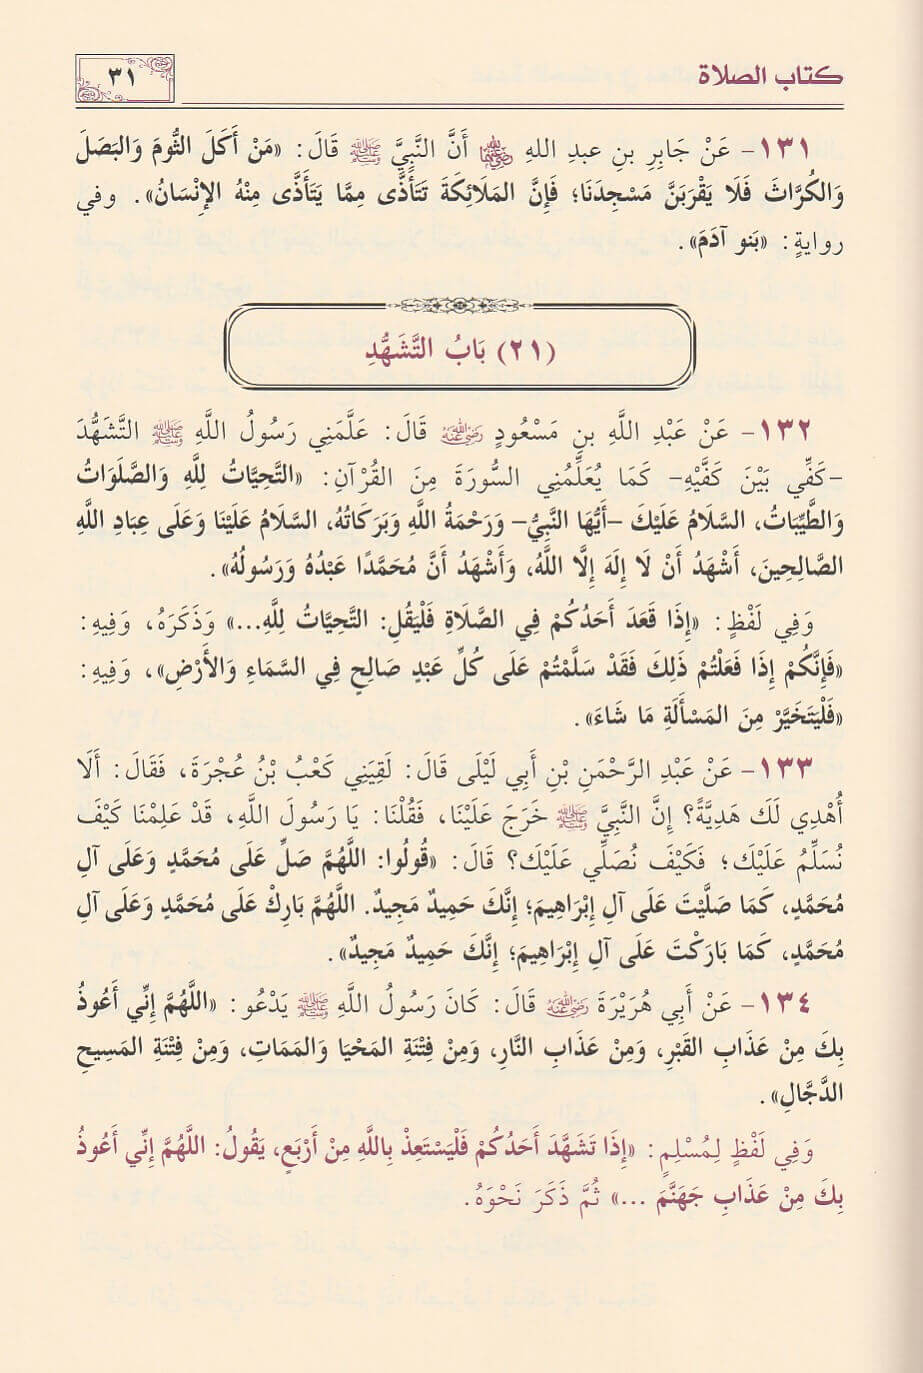 كتاب الصلاة
٣١
١٣١- عَنْ جَابِرِ بنِ عبدِ اللهِ ﵄ أَنَّ النَّبِيَّ ﷺ قَالَ: «مَنْ أَكَلَ الثُّومَ وَالبَصَلَ
وَالكُرَّاثَ فَلَا يَقْرَبَنَّ مَسْجِدَنَا؛ فَإِنَّ المَلَائِكَةَ تَتَأَذَّى مِمَّا يَتَأَذَّى مِنْهُ الإِنْسَانُ». وفي
روايةٍ: «بَنو آدَمَ».
(٢١) بَابُ التَّشَهُّدِ
١٣٢- عَنْ عَبْدِ اللَّهِ بنِ مَسْعُودٍ ﵁ قَالَ: عَلَّمَنِي رَسُولُ اللَّهِ ﷺ التَّشَهُّدَ
-كَفِّي بَيْنَ كَفَّيْهِ- كَمَا يُعَلِّمُنِي السُّورَةَ مِنَ القُرْآنِ: «التَّحِيَّاتُ لِلَّهِ وَالصَّلَوَاتُ
وَالطَّيِّبَاتُ، السَّلَامُ عَلَيْكَ -أَيُّهَا النَّبِيُّ- وَرَحْمَةُ اللَّهِ وَبَرَكَاتُهُ، السَّلَامُ عَلَيْنَا وَعَلَى عِبَادِ اللَّهِ
الصَّالِحِينَ، أَشْهَدُ أَنْ لَا إِلَهَ إِلَّا اللَّهُ، وَأَشْهَدُ أَنَّ مُحَمَّدًا عَبْدُهُ وَرَسُولُهُ».
وَفِي لَفْظٍ: «إِذَا قَعَدَ أَحَدُكُمْ فِي الصَّلَاةِ فَلْيَقُلِ: التَّحِيَّاتُ لِلَّهِ...» وَذَكَرَهُ، وَفِيهِ:
«فَإِنَّكُمْ إِذَا فَعَلْتُمْ ذَلِكَ فَقَدْ سَلَّمْتُمْ عَلَى كُلِّ عَبْدٍ صَالِحٍ فِي السَّمَاءِ وَالأَرْضِ»، وَفِيهِ:
«فَلْيَتَخَيَّرْ مِنَ المَسْأَلَةِ مَا شَاءَ».
١٣٣- عَنْ عَبْدِ الرَّحْمَنِ بْنِ أَبِي لَيْلَى قَالَ: لَقِيَنِي كَعْبُ بْنُ عُجْرَةَ، فَقَالَ: أَلَا
أُهْدِي لَكَ هَدِيَّةً؟ إِنَّ النَّبِيَّ ﷺ خَرَجَ عَلَيْنَا، فَقُلْنَا: يَا رَسُولَ اللَّهِ، قَدْ عَلِمْنَا كَيْفَ
نُسَلِّمُ عَلَيْكَ؛ فَكَيْفَ نُصَلِّي عَلَيْكَ؟ قَالَ: «قُولُوا: اللَّهُمَّ صَلِّ عَلَى مُحَمَّدٍ وَعَلَى آلِ
مُحَمَّدٍ، كَمَا صَلَّيْتَ عَلَى آلِ إِبْرَاهِيمَ؛ إِنَّكَ حَمِيدٌ مَجِيدٌ. اللَّهُمَّ بَارِكْ عَلَى مُحَمَّدٍ وَعَلَى آلِ
مُحَمَّدٍ، كَمَا بَارَكْتَ عَلَى آلِ إِبْرَاهِيمَ؛ إِنَّكَ حَمِيدٌ مَجِيدٌ».
١٣٤- عَنْ أَبِي هُرَيْرَةَ ﵁ قَالَ: كَانَ رَسُولُ اللَّهِ ﷺ يَدْعُو: «اللَّهُمَّ إِنِّي أَعُوذُ
بِكَ مِنْ عَذَابِ القَبْرِ، وَمِنْ عَذَابِ النَّارِ، وَمِنْ فِتْنَةِ المَحْيَا وَالمَمَاتِ، وَمِنْ فِتْنَةِ المَسِيحِ
الدَّجَّالِ».
وَفِي لَفْظٍ لِمُسْلِمٍ: «إِذَا تَشَهَّدَ أَحَدُكُمْ فَلْيَسْتَعِذْ بِاللَّهِ مِنْ أَرْبَعٍ، يَقُولُ: اللَّهُمَّ إِنِّي أَعُوذُ
بِكَ مِنْ عَذَابِ جَهَنَّمَ ...» ثُمَّ ذَكَرَ نَحْوَهُ.